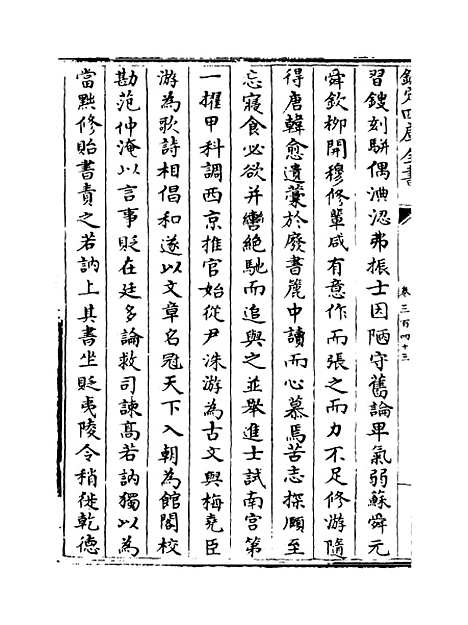 欽定四庫全書
卷三百四十三
習鎪刻駢偶淟涊弗振士因陋守舊論卑氣弱蘇舜元
舜欽柳開穆修輩咸有意作而張之而力不足修游隨
得唐韓愈遺藁於廢書簏中讀而心慕焉苦志探賾至
忘寢食必欲并轡絕馳而追與之並舉進士試南宮第
一擢甲科調西京推官始從尹洙游為古文與梅堯臣
游為歌詩相倡和遂以文章名冠天下入朝為館閣校
勘范仲淹以言事貶在廷多論救司諫高若訥獨以為
當黜修貽書責之若訥上其書坐貶夷陵令稍徙乾德